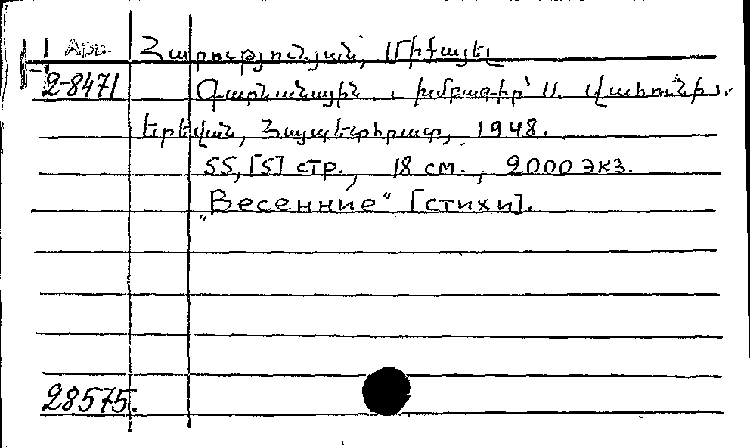 Арм. Հարությունյան, Միքայել
2-8471 Գարնանային. խմբագիր՝ Ս. Վահունի.
Երևան, Հայպետհրատ, 1948.
55, [5] стр., 18 см., 2000 экз.
„Весенние“ [стихи].
28575.